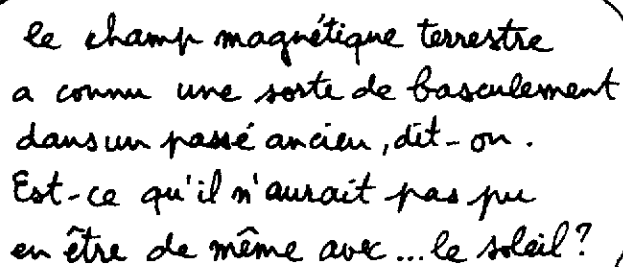 le champ magnétique terrestre
a connu une sorte de basculement
dans un passé ancien, dit-on.
Est-ce qu'il n'aurait pas pu
en être de même avec... le soleil?